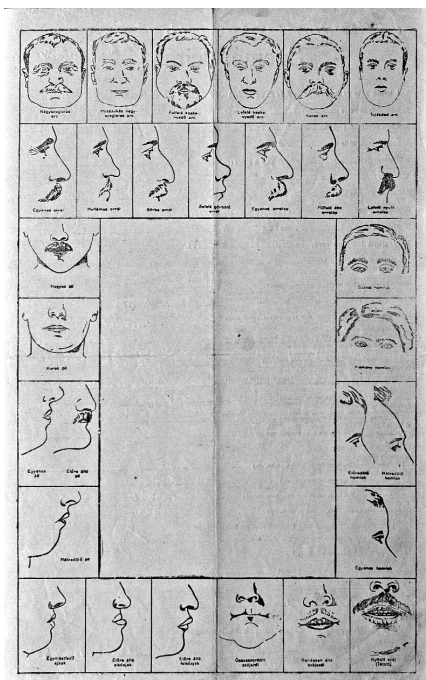 Négyszögletes
arc
Hosszúkás négy-
szögletes arc
Felfelé keske-
nyedő arc
Lefelé keske-
nyedő arc
Kerek arc
Tojásdad arc
Egyenes orrél
Hullámos orrél
Görbe orrél
Befelé görbülő
orrél
Egyenes orralap
Fölfelé álló
orralap
Lefelé nyúló
orralap
Hegyes áll
Kerek áll
Egyenes
áll
Előre álló
áll
Hátradülő áll
Széles homlok
Keskeny homlok
Előredülő
homlok
Hátradülő
homlok
Egyenes homlok
Egymástfedő
ajkak
Előre álló
alsóajak
Előre álló
felsőajak
Összeszorított
szájszél
Rendesen álló
szájszél
Nyitott száj